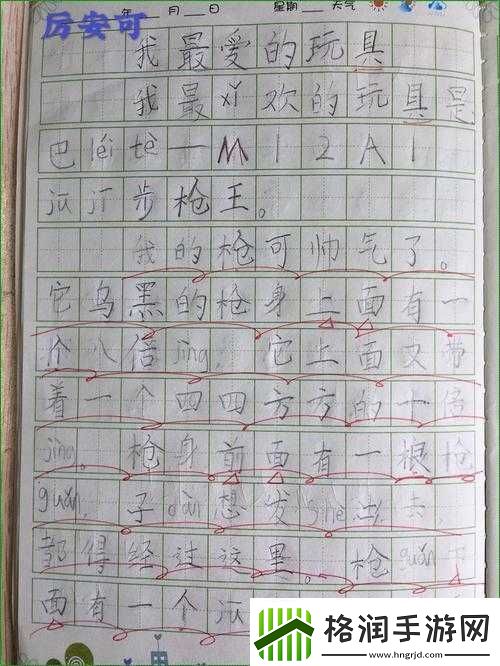 年 月 日 星期 天气
厉安可
我最爱的玩具
我最xǐ欢的玩具是
巴léi tè一M12A1
jū jī步枪王。
我的枪可帅气了。
它乌黑的枪身上面有一
个八倍jìng，它上面又带
着一个四四方方的十倍
jìng。枪身前面有一根枪
guǎn，子dàn想发shè出去，
都得经过这里。枪guǎn下
面有一个
格润手游网
www.hngrjd.com